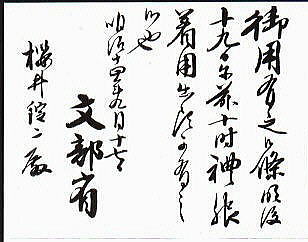 御用有之候條明後
十九日午前十時禮服
着用出頭可有之
候也
明治十四年九月十七日
文部省
櫻井錠二殿